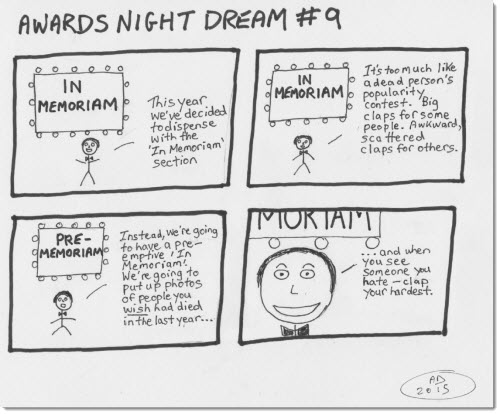 AWARDS NIGHT DREAM #9
IN
MEMORIAM
This year
we've decided
to dispense
with the
'In Memoriam'
section
IN
MEMORIAM
It's too much like
a dead person's
popularity
contest. Big
claps for some
people. Awkward,
scattered
claps for others.
PRE-
MEMORIAM
Instead, we're going
to have a pre-
emptive 'In
Memoriam'.
We're going to
put up photos
of people you
wish had died
in the last year...
MORIAM
...and when
you see
someone you
hate – clap
your hardest.
AD
2015